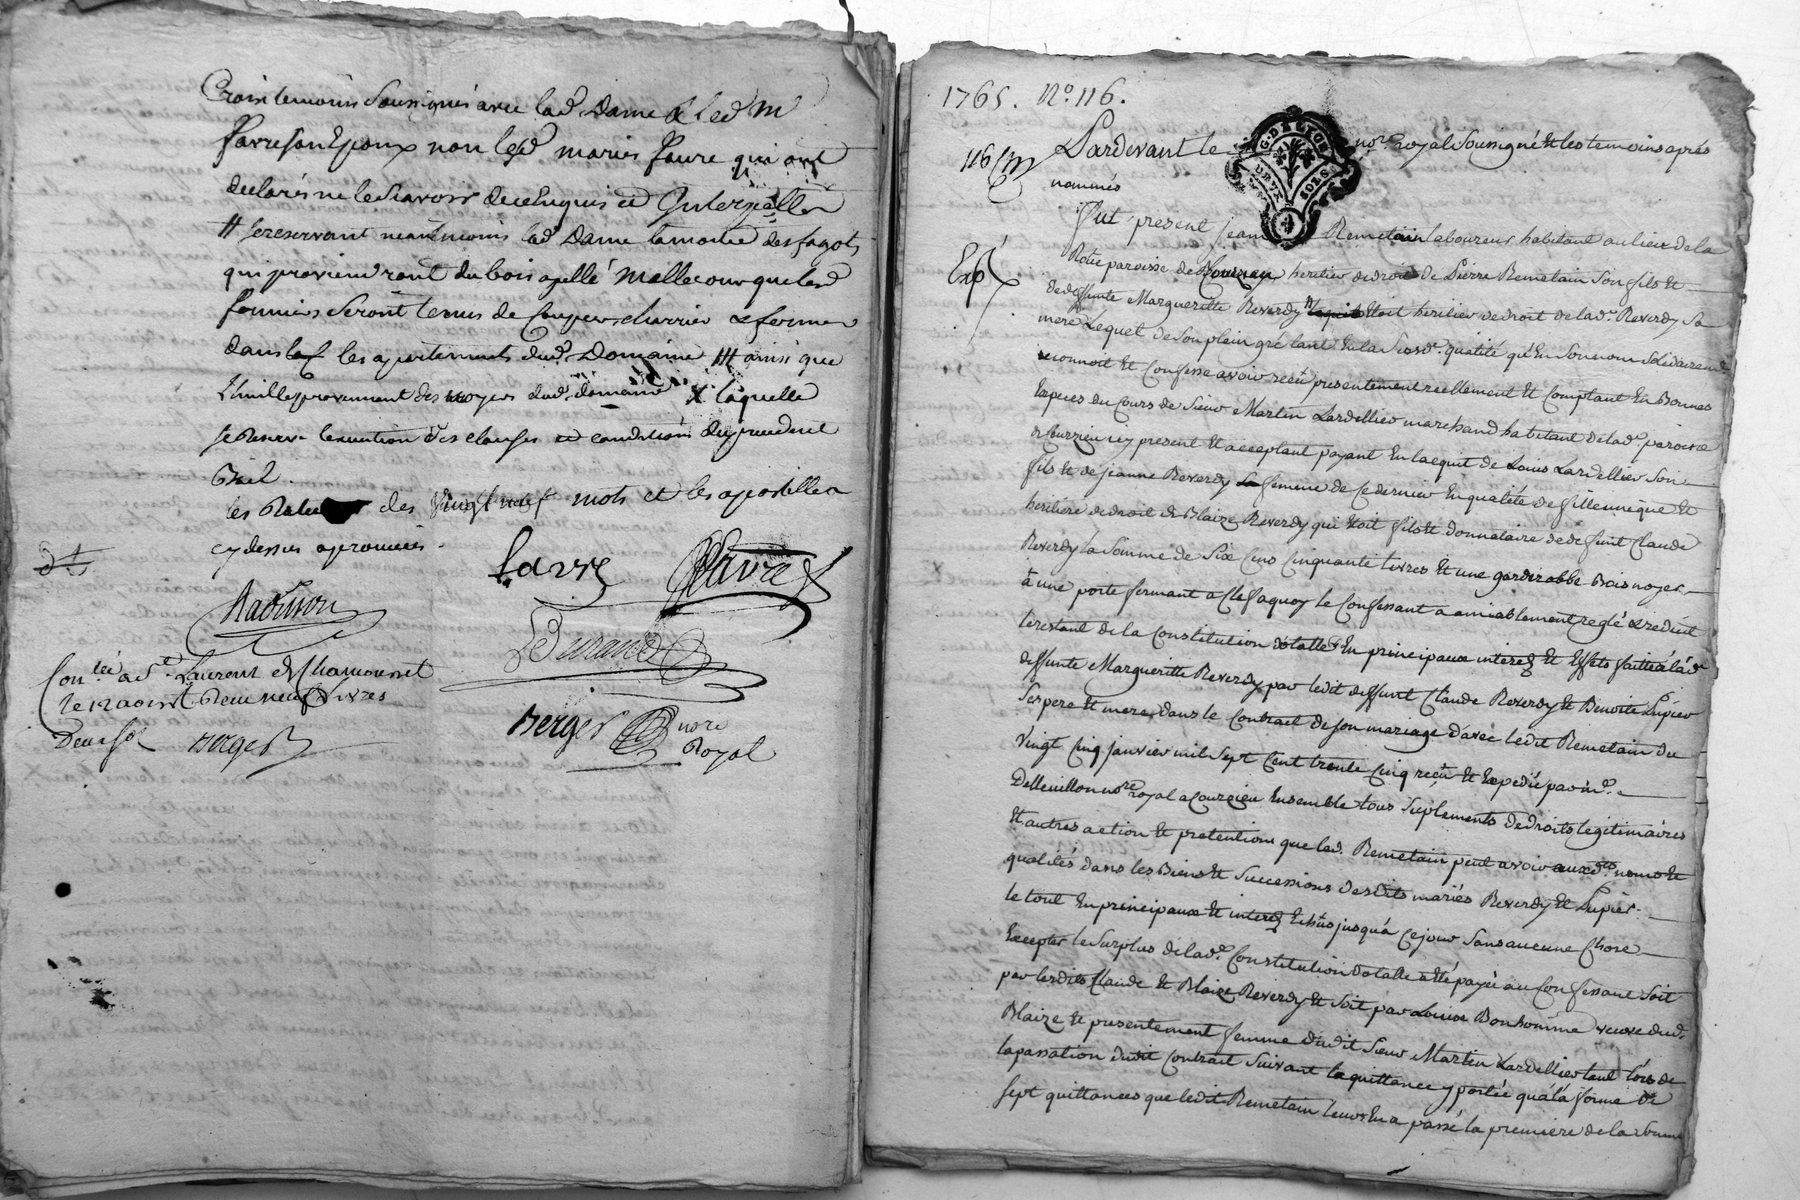 temoins Soussignés avec lad. Dame & led. m
favre son Epoux non lesd. mariés faure qui ont
declarés ne le sçavoir de ce enquis et
# se reservant neantmoins lad. Dame la moitié des fagots
qui proviendront du bois apellé que lesd.
fermiers seront tenus de Couper charrier & fermer
dans les apartements dud. Domaine ### ainsi que
L'huille provenant des noyers dud. domaine X laquelle
se reserve l'execution des clauses et conditions du present
Bail.
les des vingt neuf mots et les apostilles
cy dessus aprouvées.
favre
favre
Durand
Con.lé a St. Laurent de Chamousset
le 12 aoust Reçu neuf livres
Deux sol Berger
Berger
no.re
Royal
1765. No. 116.
116
Pardevant le no.re royal Soussigné & les temoins après
G. DE LYON
nommés
Exp.
fut present jean Remetain laboureur habitant au lieu de la
Rotte paroisse de Courzieu heritier de droit de Pierre Remetain son fils &
de deffunte Margueritte Reverdy etoit heritier de droit de lad. Reverdy sa
mere Lequel de son plein gré tant en lad. qualité qu'en son nom solidairement
reconnoit & Confesse avoir reçeu presentement reellement & Comptant en Bonnes
Especes du Cours de Sieur Martin Lardellier marchand habitant de lad. paroisse
de Courzieu icy present & acceptant payant En lacquit de Louis Lardellier Son
fils & de jeanne Reverdy femme de ce dernier En qualité de fille unique &
heritiere de droit de Blaize Reverdy qui etoit fils & donnataire de deffunt Claude
Reverdy la Somme de Six Cens Cinquante livres & une garderobbe Bois noyer
à une porte fermant a Clef a quoy le Confessant a amiablement reglé & reduit
le restant de la Constitution dotalle En principaux interets & Effets faitte à lad.
deffunte Margueritte Reverdy par ledit deffunt Claude Reverdy & Benoite Lupier
Ses pere & mere, dans le Contract de son mariage d'avec ledit Remetain du
Vingt Cinq janvier mil Sept Cent trente Cinq reçeu & Expedié par M.
Delleuillon no.re royal a Courzieu Ensemble tous Suplements de droits legitimaires
& autres action & pretentions que led. Remetain peut avoir auxd. noms &
qualités dans les Biens & Successions desdits mariés Reverdy & Lupier.
le tout En principaux & interets Echus jusqu'à Ce jour Sans aucune Chose
Excepter le Surplus de lad. Constitution dotalle a été payé au Confessant Soit
par lesdits Claude & Blaize Reverdy & Soit par Louise Bonhomme veuve dud.
Blaize & presentement femme dudit Sieur Martin Lardellier tant lors de
la passation dudit Contract Suivant la quittance y portée qu'à la forme de
Sept quittances que ledit Remetain leur En a passé la premiere de la Somme